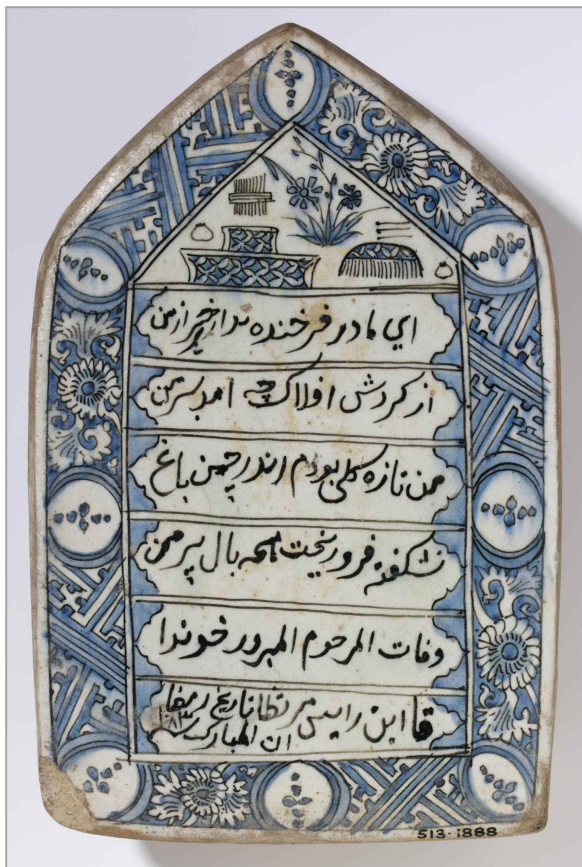 اي مادر فرخنده ندار خبر ازمن
از کردش افلاک چه امد بسر من
من تازه کلی بودم اندر چمن باغ
نشکفته فرو ریخت همه بال پر من
وفات المرحوم المبرور خوندا
قا ابن رایس مرتظا تاریخ رمضا
ان المبارک
513-1888